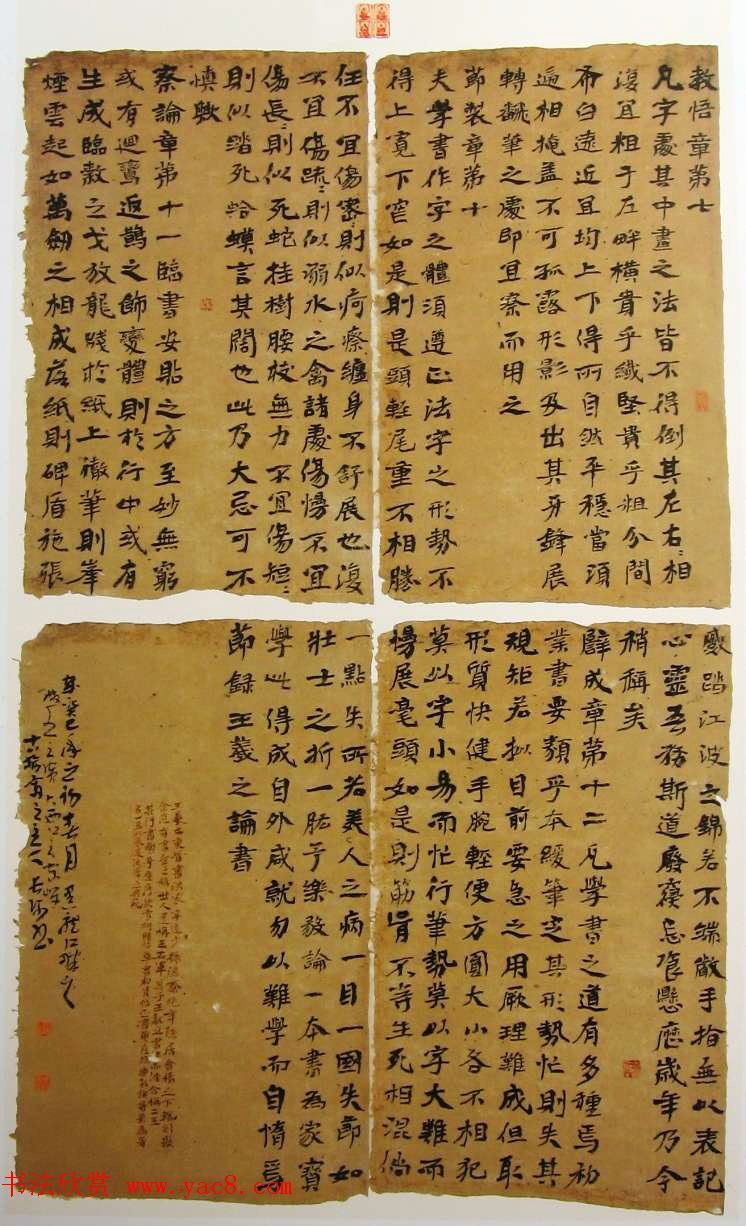 教悟章第七
凡字處其中畫之法皆不得倒其左右=相
復宜粗于左畔橫貴乎纖竪貴乎粗分間
布白遠近宜均上下得所自然平穩當須
遞相掩蓋不可孤露形影及出其牙鋒展
轉翻筆之處即宜察而用之
節製章第十
夫學書作字之體須遵正法字之形勢不
得上寬下窄如是則是頭輕尾重不相勝
任不宜傷密=則似疴瘵纏身不舒展也復
不宜傷疏=則似溺水之禽諸處傷慢不宜
傷長=則似死蛇挂樹腰枝無力不宜傷短=
則似踏死蛤蟆言其闊也此乃大忌可不
慎歟
察論章第十一臨書安貼之方至妙無窮
或有迴鸞返鵲之飾變體則於行中或有
生成臨數之戈放龍牋於紙上徹筆則峯
煙雲起如萬劒之相成落紙則碑盾施張
蹙踏江波之錦若不端嚴手指無以表記
心靈吾務斯道廢寢忘飡懸歷歲年乃今
稍稱矣
譬成章第十二凡學書之道有多種焉初
業書要類乎本緩筆定其形勢忙則失其
規矩若擬目前要急之用厥理難成但取
形質快健手腕輕便方圓大小各不相犯
莫以字小易而忙行筆勢莫以字大難而
慢展毫頭如是則筋骨不等生死相混倘
一點失所若美人之病一目一國失節如
壯士之折一肱予樂教論一本書為家寶
學此得成自外咸就勿以難學而自惰焉
節録王羲之論書
书法欣赏 www.yac8.com